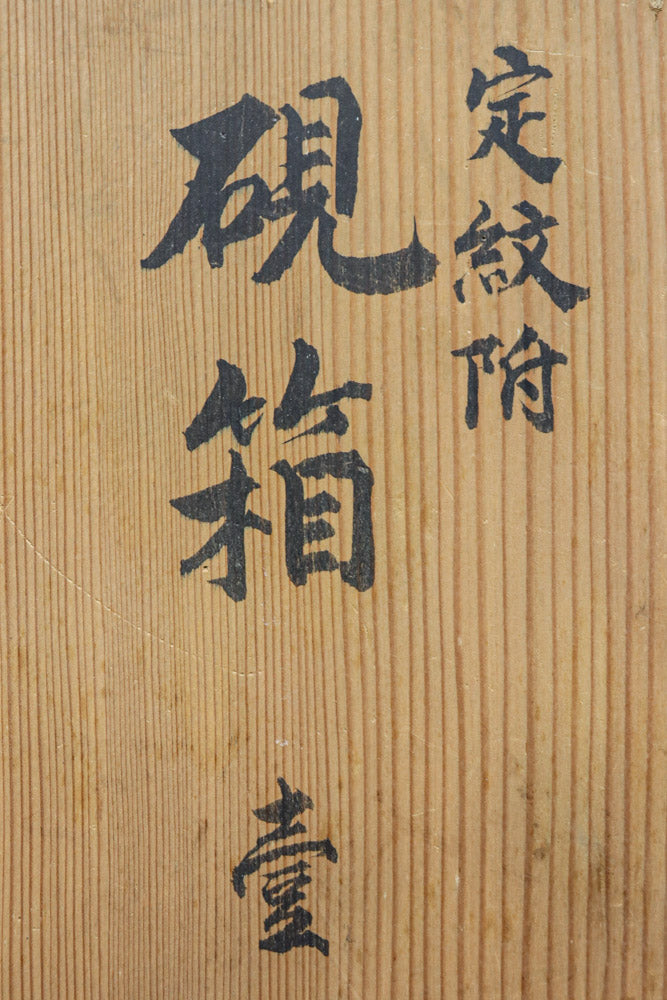 定紋附
硯箱 壹